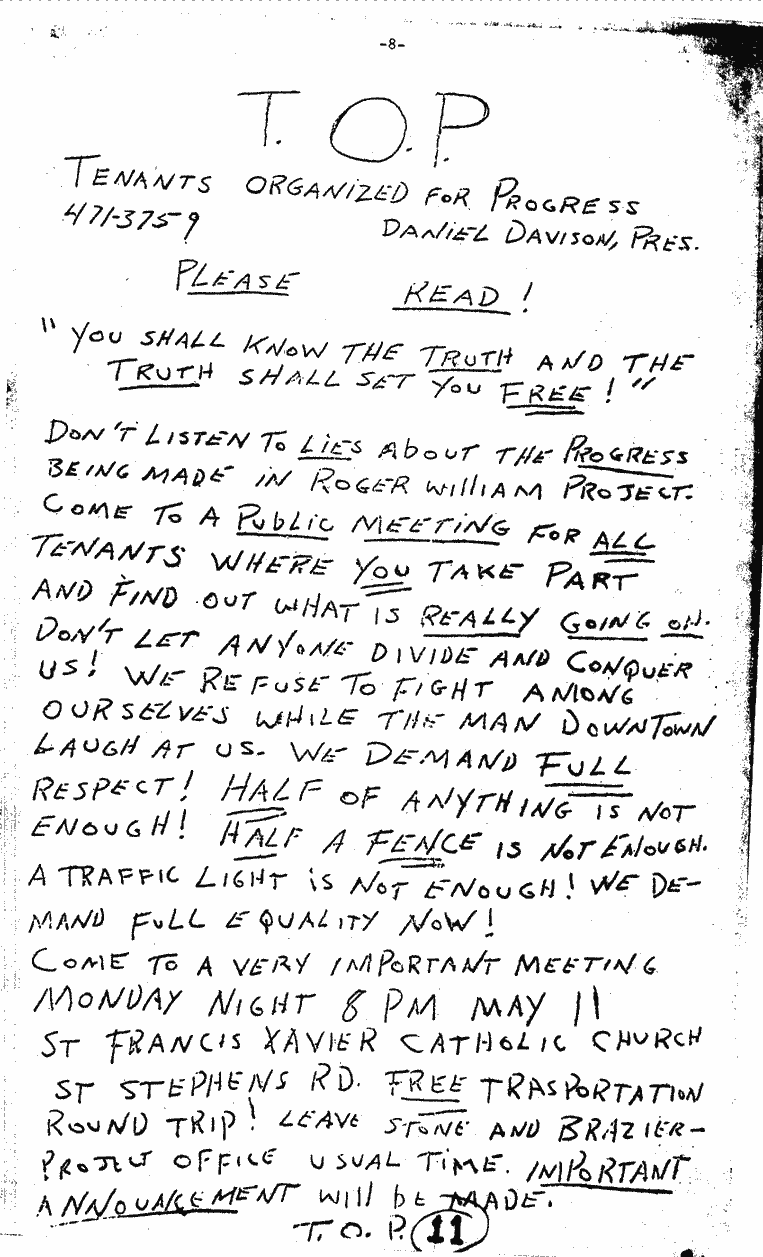 -8-
T. O. P.
TENANTS ORGANIZED FOR PROGRESS
471-3759 DANIEL DAVISON, PRES.
PLEASE READ!
"YOU SHALL KNOW THE TRUTH AND THE
TRUTH SHALL SET YOU FREE!"
DON'T LISTEN TO LIES ABOUT THE PROGRESS
BEING MADE IN ROGER WILLIAM PROJECT.
COME TO A PUBLIC MEETING FOR ALL
TENANTS WHERE YOU TAKE PART
AND FIND OUT WHAT IS REALLY GOING ON.
DON'T LET ANYONE DIVIDE AND CONQUER
US! WE REFUSE TO FIGHT AMONG
OURSELVES WHILE THE MAN DOWNTOWN
LAUGH AT US. WE DEMAND FULL
RESPECT! HALF OF ANYTHING IS NOT
ENOUGH! HALF A FENCE IS NOT ENOUGH.
A TRAFFIC LIGHT IS NOT ENOUGH! WE DE-
MAND FULL EQUALITY NOW!
COME TO A VERY IMPORTANT MEETING
MONDAY NIGHT 8 PM MAY 11
ST FRANCIS XAVIER CATHOLIC CHURCH
ST STEPHENS RD. FREE TRASPORTATION
ROUND TRIP! LEAVE STONE AND BRAZIER-
PROJECT OFFICE USUAL TIME. IMPORTANT
ANNOUNCEMENT WILL BE MADE.
T. O. P. 11